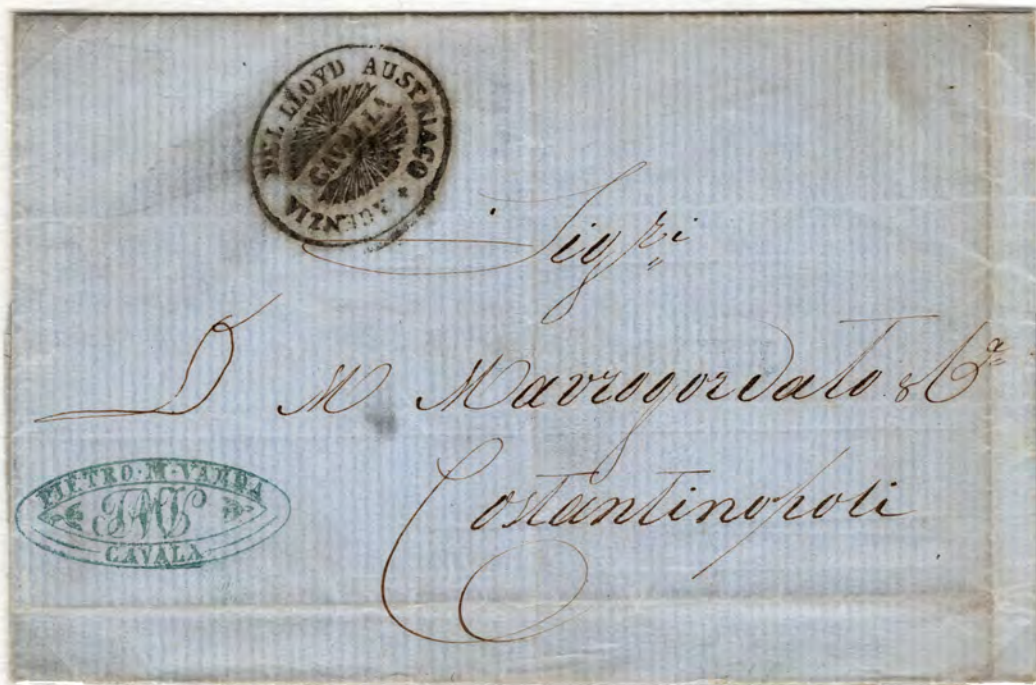 AGENZIA DEL LLOYD AUSTRIACO
CAVALLA
Sigri
D M Mavrogordato & Ca
Costantinopoli
PIETRO·M·VARDA
PMV
CAVALA